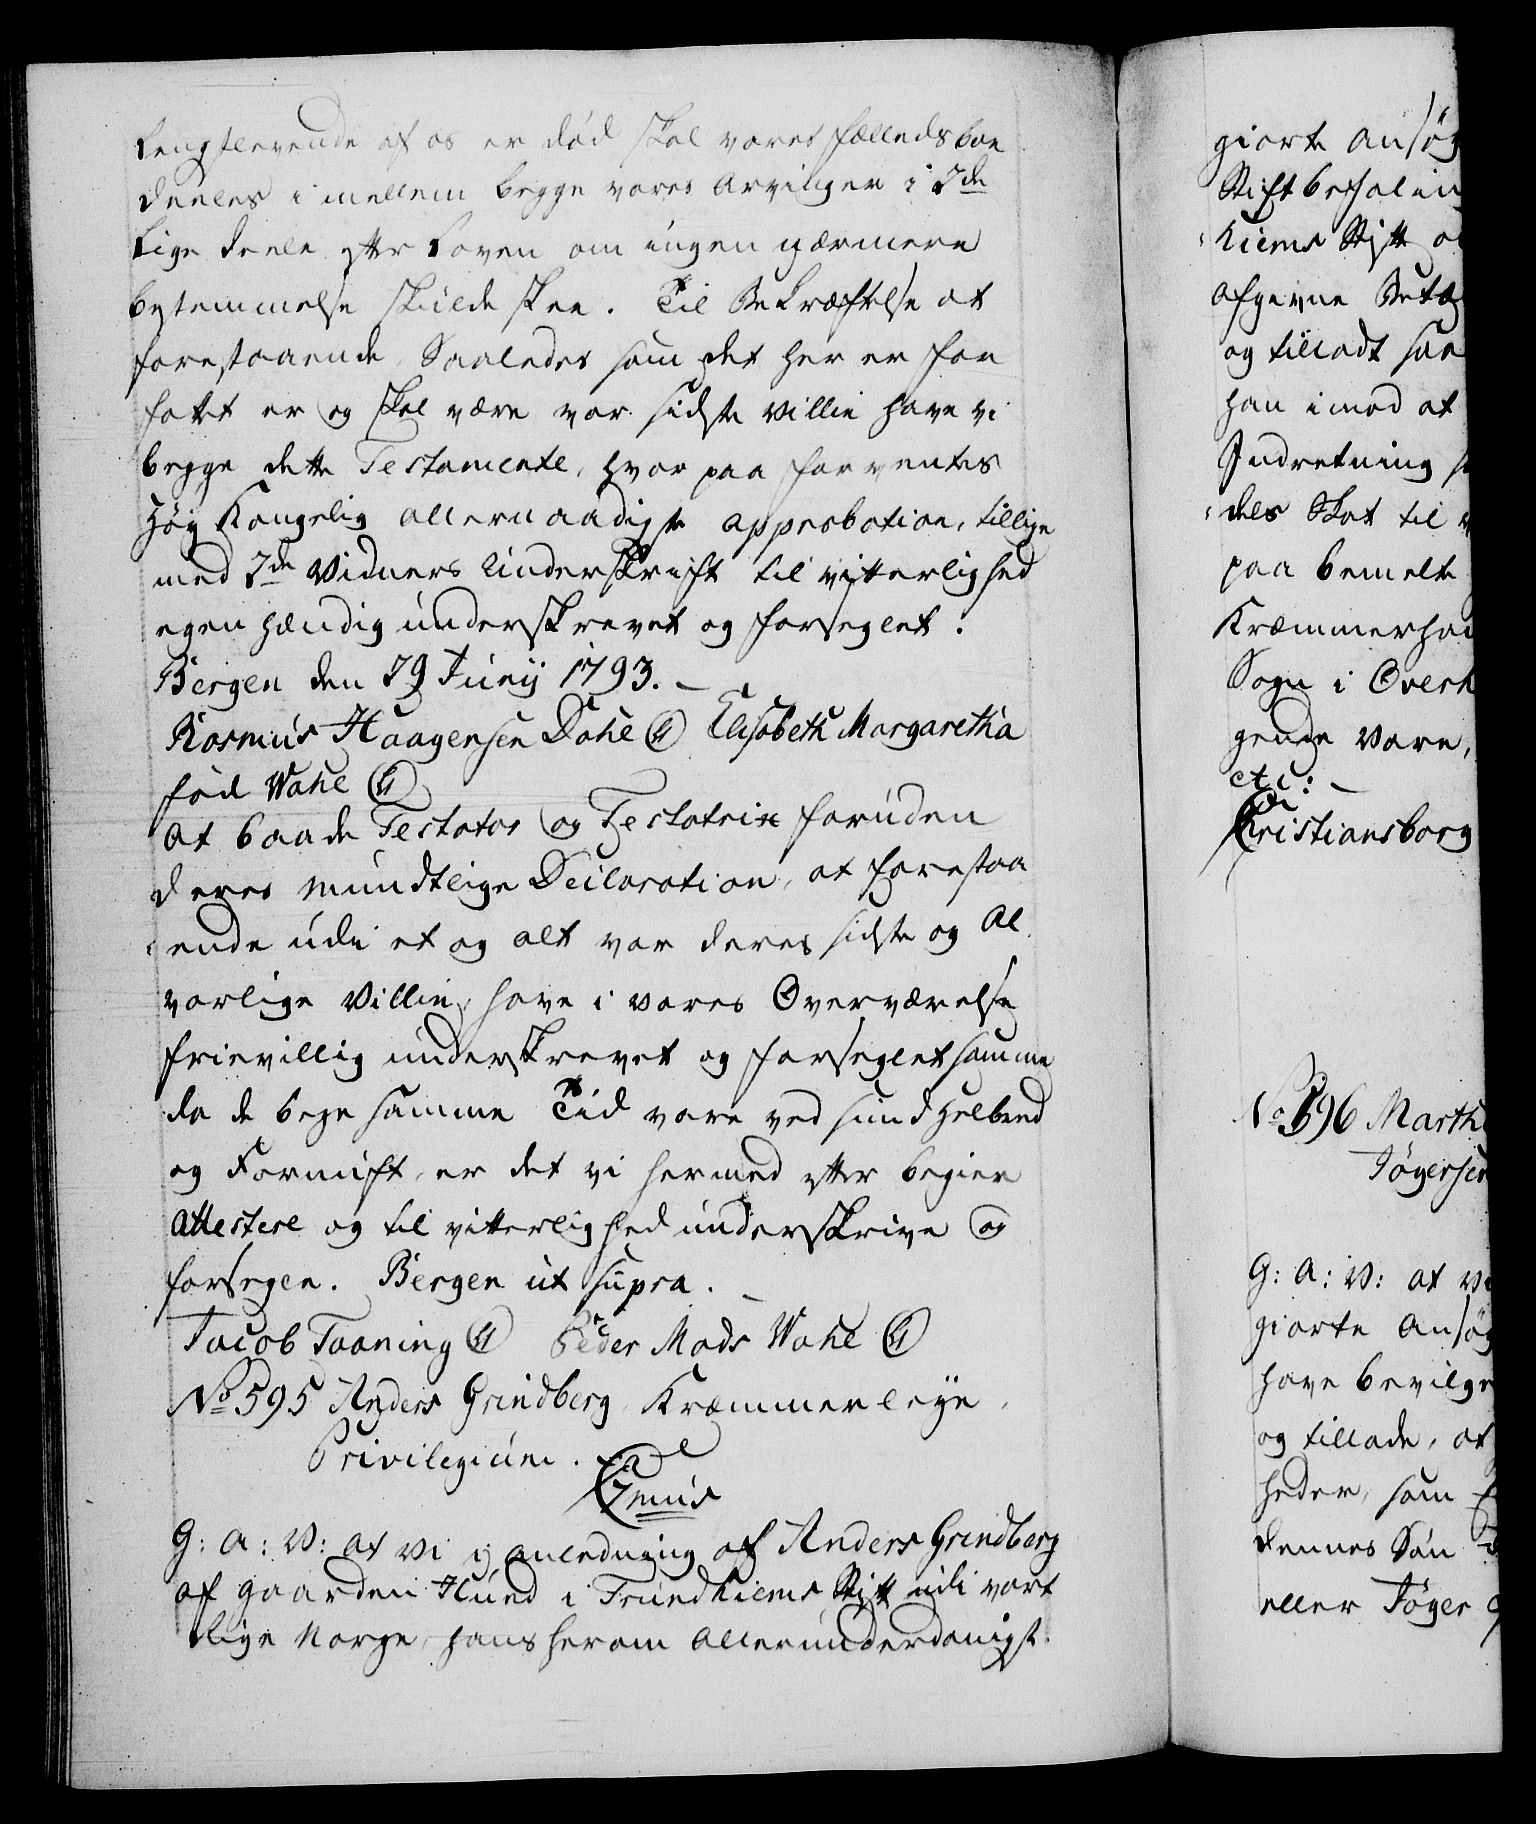 Længstlevende af os er død skal vores Fælledsboe
deeles i mellem begge vores Arvinger i 2de
Lige deele efter Loven om ingen nærmere
bestemmelse skulde skee. Til Bekræftelse at
forestaaende Saaledes som det her er for
fattet er og skal være vor sidste Villie have vi
begge dette Testamente, hvor paa forventes
Høy Kongelig allernaadigste approbation, tillige
med 2de Vidners Underskrift til vitterlighed
egenhændig underskrevet og forseglet.
Bergen den 29 Junii 1793. –
Rasmus Haagensen Dahl Elisabeth Margaretha
fød Wahl
At baade Testator og Testatrix foruden
deres mundtlige Declaration, at forestaa
ende udi et og alt var deres sidste og Al
vorlige Villie, have i vores Overværelse
frievillig underskrevet og forseglet samme
da de bege samme Tid vare ved sund Helbred
og Fornuft, er det vi hermed efter begier
attestere og til vitterlighed underskrive og
forsegen. Bergen ut supra.
Jacob Taaning Peder Mads Wahl
No 595 Anders Grindberg Kræmmerleye
Privilegium.
G: A: V: at vi i anledning af Anders Grindberg
af gaarden Hund i Trundhiems Stift udi vort
Rige Norge, hans herom Allerunderdanigst
giorte Ansøg
Stiftbefalin
hiems Stift o
afgivne Betæ
og tilladt saa
han imod at
Indretning
dels Skat til
paa bemelte
Kræmmerhan
Sogn i Overh
gende Vare,
etc: –
Christiansborg
No 596 Marth
Jøgersen
G: A: V: at vi
giorte Ansøg
have bevilge
og tillade, at
heder, som
dennes Søn
eller Jøger